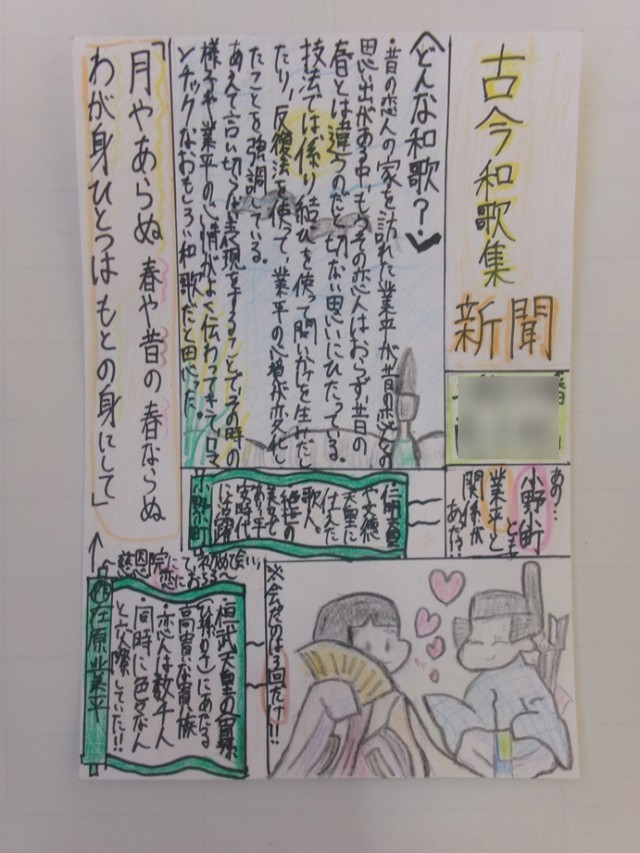 古今和歌集
新聞
〈どんな和歌？〉
・昔の恋人の家を訪れた業平が昔の恋人との
思い出がある中もうその恋人はおらず、昔の
春とは違うのだと切ない思いにひたっている。
技法では係り結びを使って問いかけを生みだし
たり、反復法を使って、業平の心情が変化し
たことを強調している。
あえて言い切らない表現をすることでその時の
様子や業平の心情がよく伝わってきてロマ
ンチックなおもしろい和歌だと思った。
「月やあらぬ 春や昔の 春ならぬ
わが身ひとつは もとの身にして」
あの…
小野小町
業平と
関係が
あった!?
小野小町
仁明天皇
や文徳
天皇に
仕えた
歌人。
絶世の
美女で
あり平
安時代
に活躍
在原業平
・桓武天皇の曾孫
高貴な貴族
・恋人は数千人
同時に色々な人
と交際していた!!
※会ったのは3回だけ!!